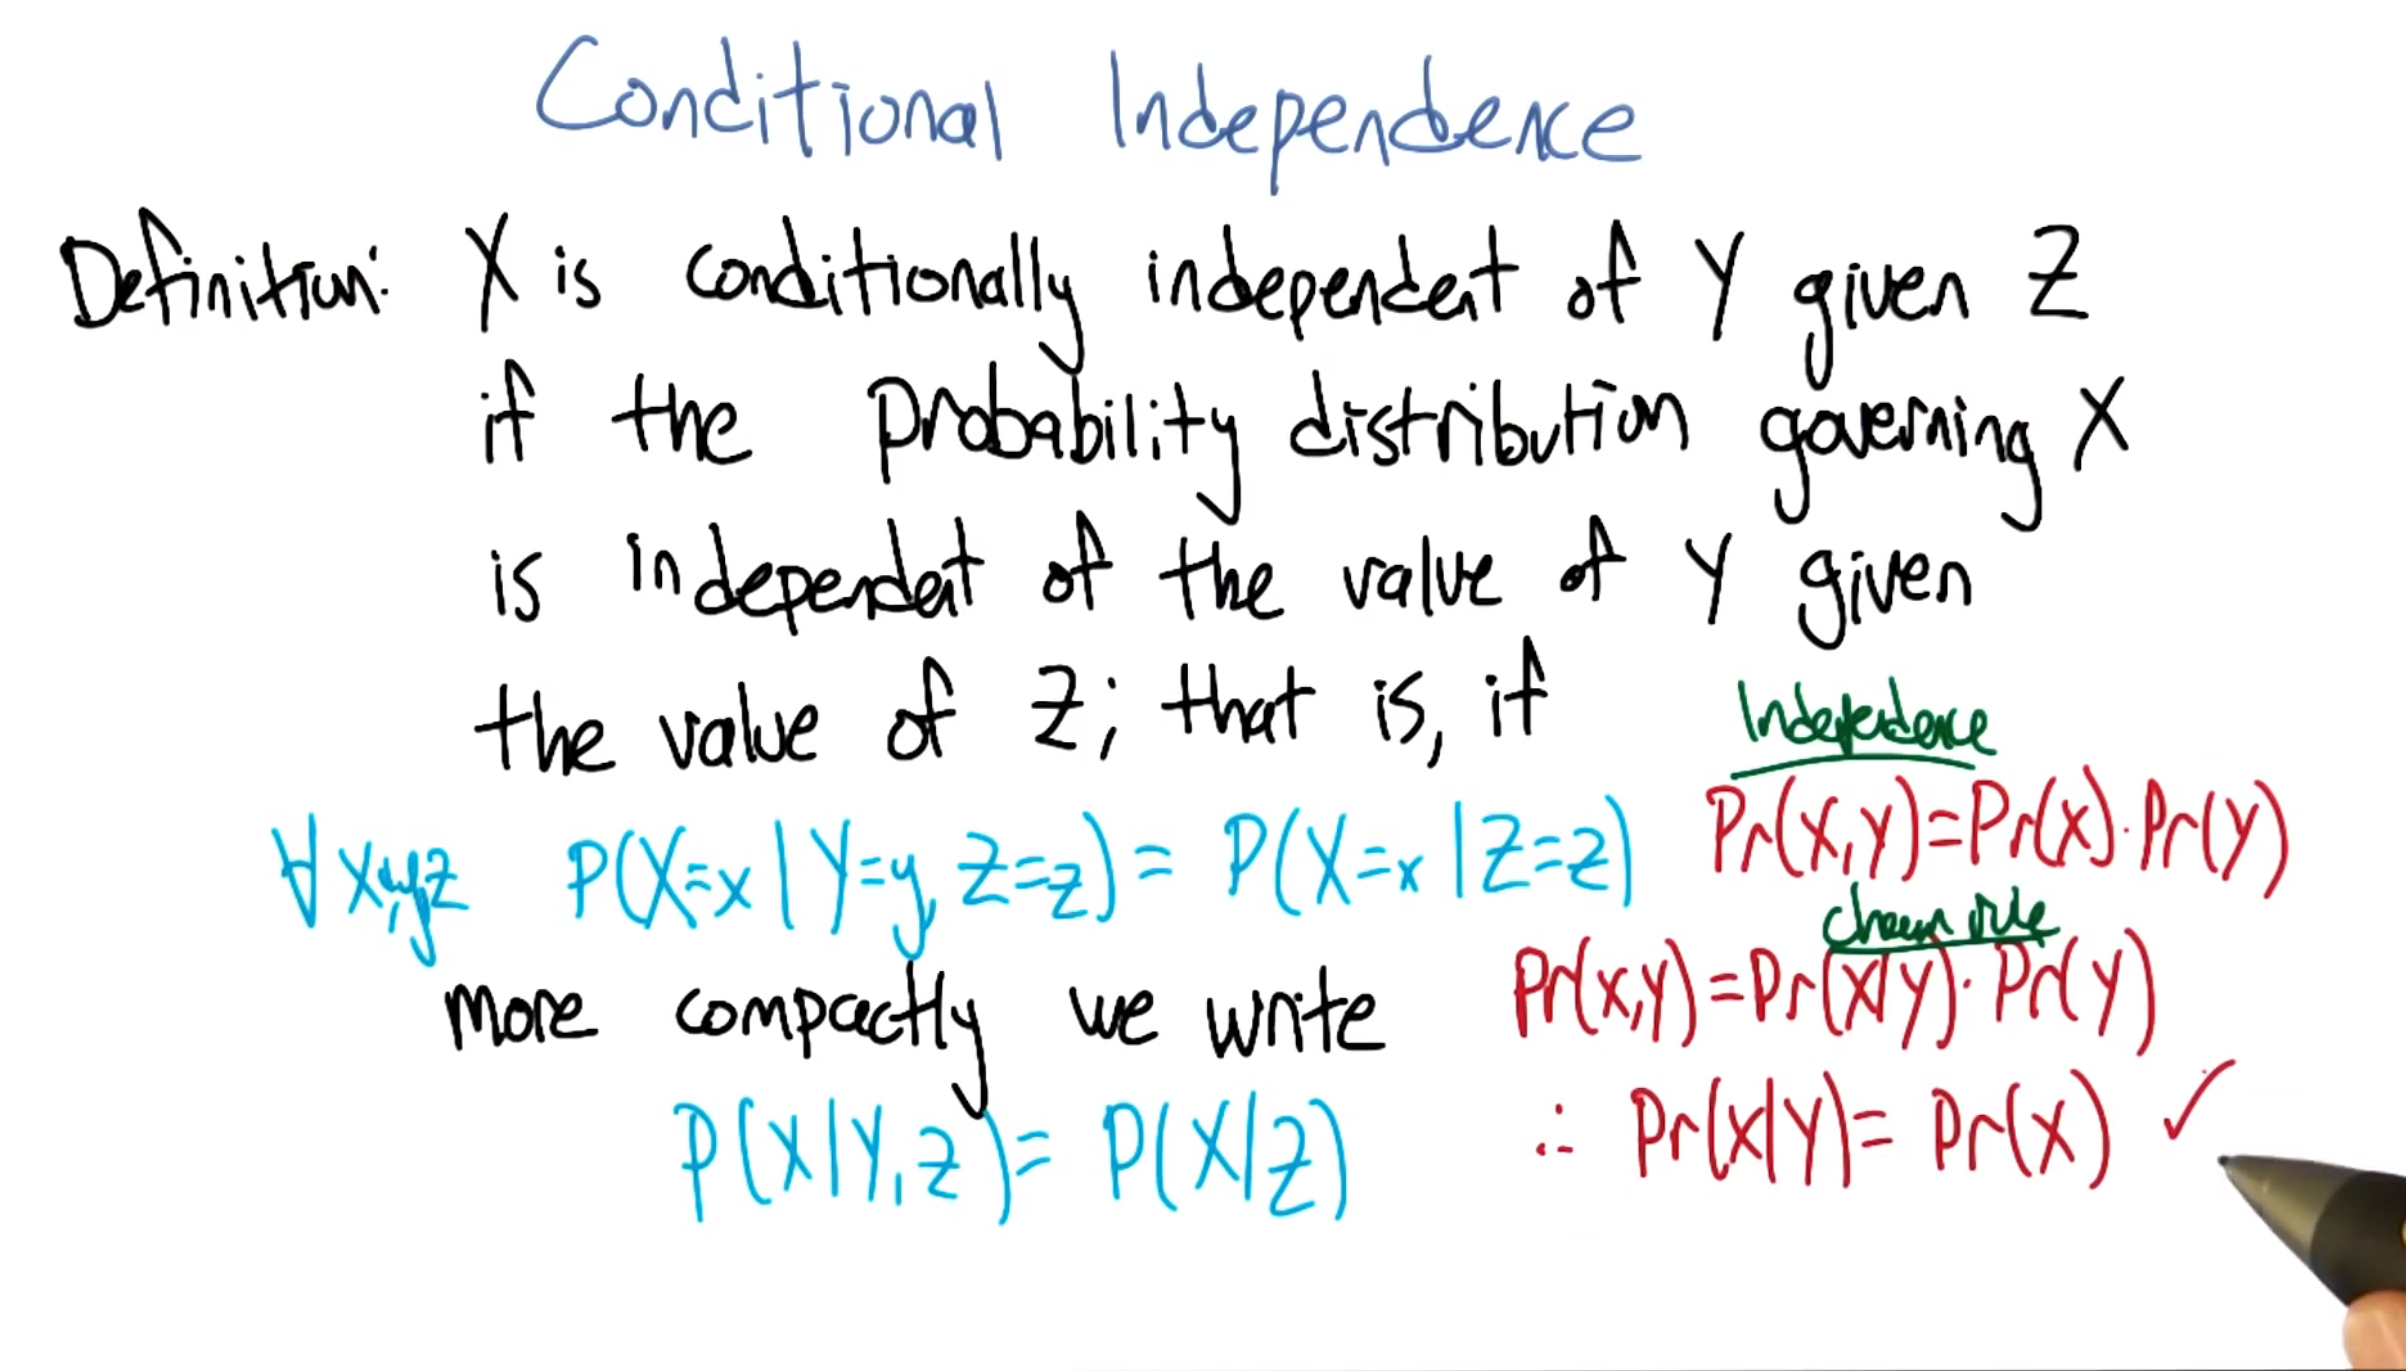 Conditional Independence
Definition: X is conditionally independent of Y given Z
if the probability distribution governing X
is independent of the value of Y given
the value of Z; that is, if
∀x,y,z P(X=x | Y=y, Z=z) = P(X=x | Z=z)
more compactly we write
P(X|Y,Z) = P(X|Z)
Independence
Pr(X,Y)=Pr(X)·Pr(Y)
chain rule
Pr(X,Y)=Pr(X|Y)·Pr(Y)
∴ Pr(X|Y)= Pr(X) ✓